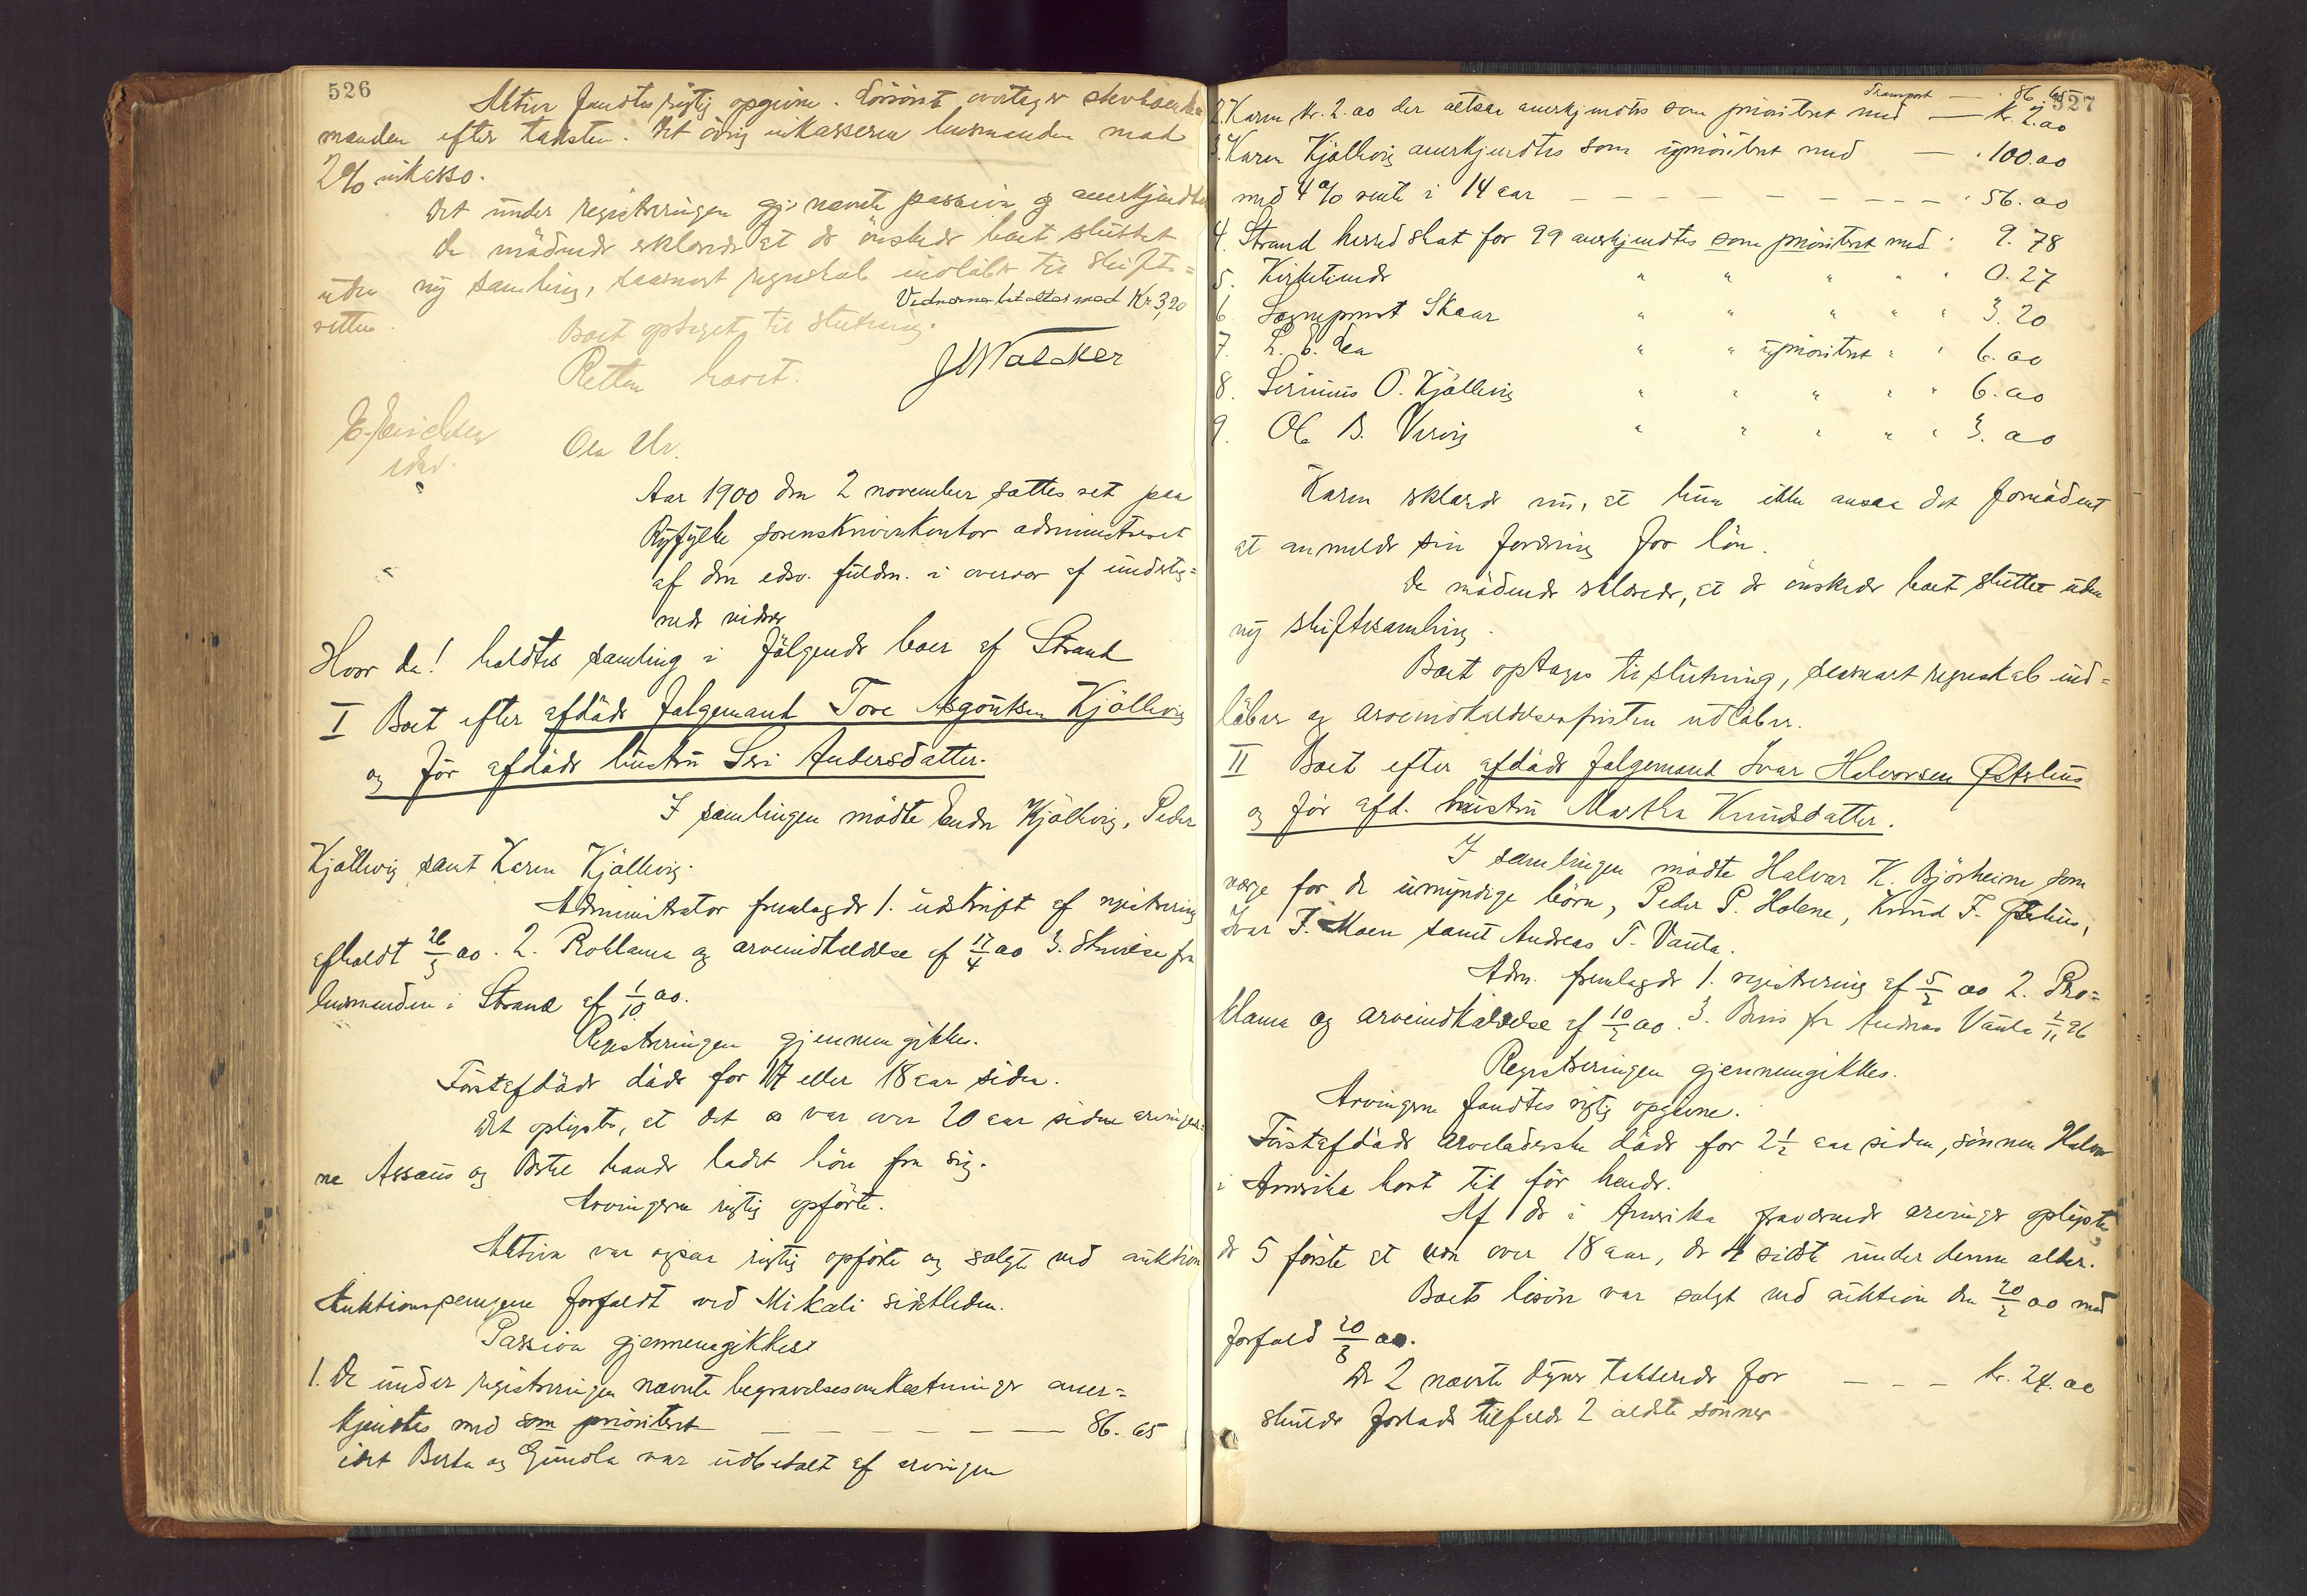 526
Aktiva fandtes rigtig opgivne. Løsöret overtages
manden efter taksten. Det övrig inkasseres lensmanden mod
2% inkasso.
Det under registreringen nævnte passiva anerkjendtes
De mödende erklærede at de önskede boet sluttet
uden ny samling, saasnart regnskab indløber til skifte=
retten. Vidnerne betaltes med Kr 3,20
Boet optaget til slutning.
Retten hævet. JWalcker
Ola Ur.
Aar 1900 den 2 november sattes ret paa
Ryfylke sorenskriverkontor administreret
af den edsv. fuldm. i overvær af underteg=
nede vidner
Hvor da! holdtes samling i følgende boer af Strand
I Boet efter afdöde folgemand Tore Asgautsen Kjöllevig
og før afdöde hustru Siri Andersdatter.
I samlingen mödte Endre Kjöllevig, Peder
Kjöllevig samt Karen Kjöllevig.
Administrator fremlagde 1. udskrift af registrering
afholdt 26/3 00. 2. Proklama og arveindkaldelse af 17/4 00 3. Skrivelse fra
lensmanden i Strand af 1/10 00.
Registreringen gjennemgikkes.
Förstafdöde döde for 17 eller 18 aar siden.
Det oplystes, at det var over 20 aar siden arvinger=
ne Assaus og Bertel havde ladet höre fra sig.
Arvingerne rigtig opførte.
Aktiva var ogsaa rigtig opførte og solgte ved auktion
Auktionspengene forfaldt ved Mikali sidstleden.
Passiva gjennemgikkes
1. De under registreringen nævnte begravelsesomkostninger aner=
kjendtes med som prioritert — 86.65
idet Berta og Gundla var udbetalt af arvingen
Transport — 86.65
527
2. Karen Kr. 2.00 der altsaa anerkjendtes som prioritert med — Kr. 2.00
3. Karen Kjöllevig anerkjendtes som uprioritert med — 100.00
med 4% rente i 14 aar — 56.00
4. Strand herredskat for 99 anerkjendtes som prioritert med 9.78
5. Kirketiende " " " " " 0.27
6. Sogneprest Skaar " " " " " 3.20
7. L. E. Lea " " uprioritert " " 6.00
8. Serinius O. Kjöllevig " " " " " 6.00
9. Ole B. Vervig " " " " " 3.00
Karen erklærede nu, at hun ikke ansaa det fornödent
at anmelde sin fordring for lön.
De mödende erklærede, at de önskede boet sluttet uden
ny skiftesamling.
Boet optages til slutning, saasnart regnskab ind=
löber og arveindkaldelsesfristen udlöber.
II Boet efter afdöde folgemand Ivar Halvorsen Østerhus
og før afd. hustru Martha Knudsdatter.
I samlingen mödte Halvar K. Björheim som
værge for de umyndige börn, Peder P. Holene, Knud T. Østerhus,
Ivar T. Moen samt Andreas T. Vaula.
Adm. fremlagde 1. registrering af 5/2 00 2. Pro=
klama og arveindkaldelse af 10/2 00 3. Brev fra Andreas Vaula 2/11 96
Registreringen gjennemgikkes.
Arvingerne fandtes rigtig opgivne.
Förstafdöde arveladerske döde for 2 1/2 aar siden, sönnen Halvor
i Amerika kort tid før hende.
Af de i Amerika fraværende arvinger oplystes
de 5 første at være over 18 aar, de 4 sidste under denne alder.
Boets lösöre var solgt ved auktion den 20/2 00 med
forfald 20/8 00.
De 2 nævnte dyner takserede for — Kr. 24.00
skulde forlods tilfalde 2 ældste sönner